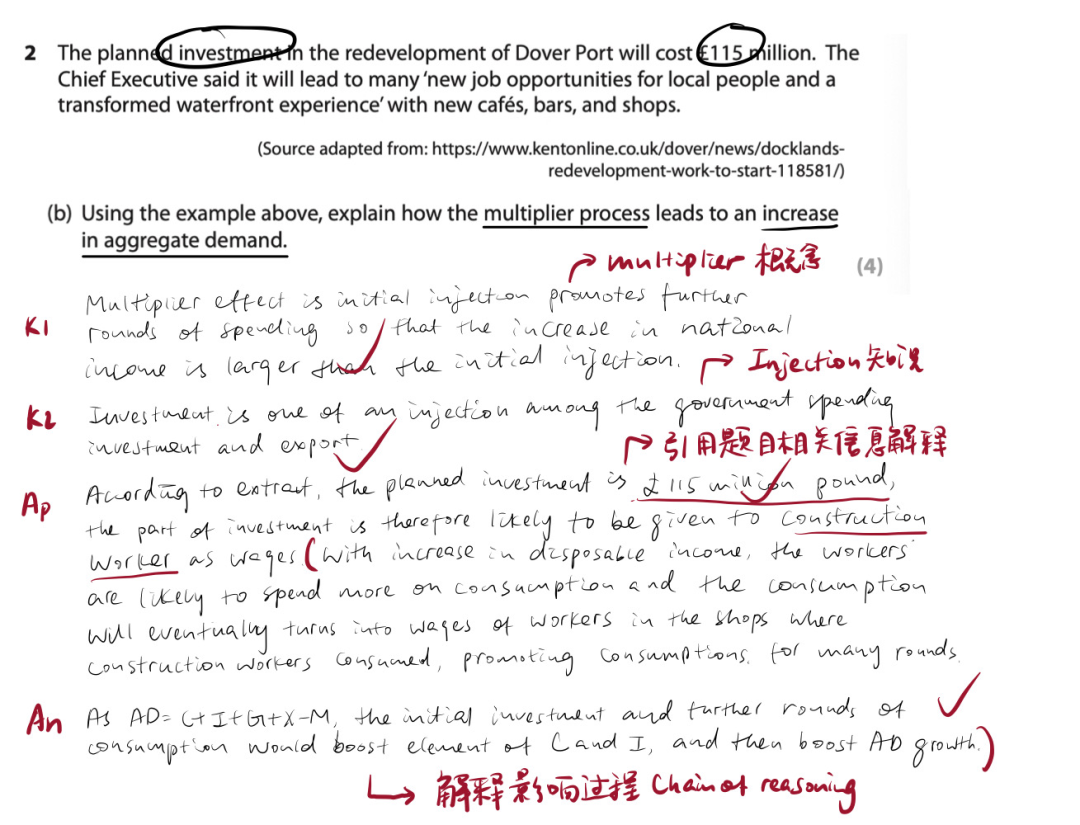 2 The planned investment in the redevelopment of Dover Port will cost £115 million. The
Chief Executive said it will lead to many ‘new job opportunities for local people and a
transformed waterfront experience’ with new cafés, bars, and shops.
(Source adapted from: https://www.kentonline.co.uk/dover/news/docklands-
redevelopment-work-to-start-118581/)
(b) Using the example above, explain how the multiplier process leads to an increase
in aggregate demand.
multiplier 概念 (4)
Multiplier effect is initial injection promotes further
K1 rounds of spending so that the increase in national
income is larger than the initial injection.
Injection知识
K2 Investment is one of an injection among the government spending
investment and export
引用题目相关信息解释
Ap According to extract, the planned investment is £115 million pound,
the part of investment is therefore likely to be given to construction
worker as wages. (With increase in disposable income, the workers
are likely to spend more on consumption and the consumption
will eventually turns into wages of workers in the shops where
construction workers consumed, promoting consumptions for many rounds.
An As AD=C+I+G+X-M, the initial investment and further rounds of
consumption would boost element of C and I, and then boost AD growth.)
解释影响过程 Chain of reasoning